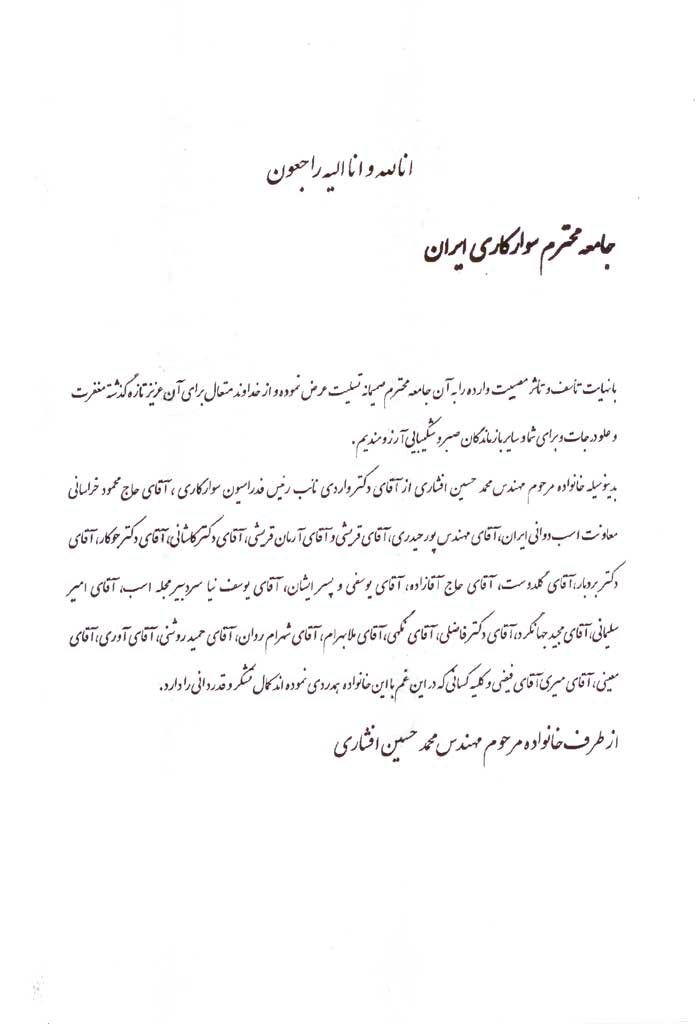 انالله و انا الیه راجعون
جامعه محترم سوارکاری ایران
با نهایت تأسف و تأثر مصیبت وارده را به آن جامعه محترم صمیمانه تسلیت عرض نموده و از خداوند متعال برای آن عزیز تازه گذشته مغفرت
و علو درجات و برای شما و سایر بازماندگان صبر و شکیبایی آرزومندیم.
بدینوسیله خانواده مرحوم مهندس محمد حسین افشاری از آقای دکتر واردی نائب رئیس فدراسیون سوارکاری ، آقای حاج محمود خراسانی
معاونت اسب دوانی ایران، آقای مهندس پورحیدری، آقای قریشی و آقای آرمان قریشی، آقای دکتر کاشانی، آقای دکتر جوکار، آقای
دکتر بردبار، آقای گلدوست، آقای حاج آقازاده، آقای یوسفی و پسر ایشان، آقای یوسف نیا سردبیر مجله اسب، آقای امیر
سلیمانی، آقای مجید جهانگرد، آقای دکتر فاضلی، آقای نگهی، آقای ملابهرام، آقای شهرام روان، آقای حمید روشنی، آقای آوری، آقای
معینی، آقای میری آقای فیضی و کلیه کسانی که در این غم با این خانواده همدردی نموده اند کمال تشکر و قدردانی را دارد.
از طرف خانواده مرحوم مهندس محمد حسین افشاری